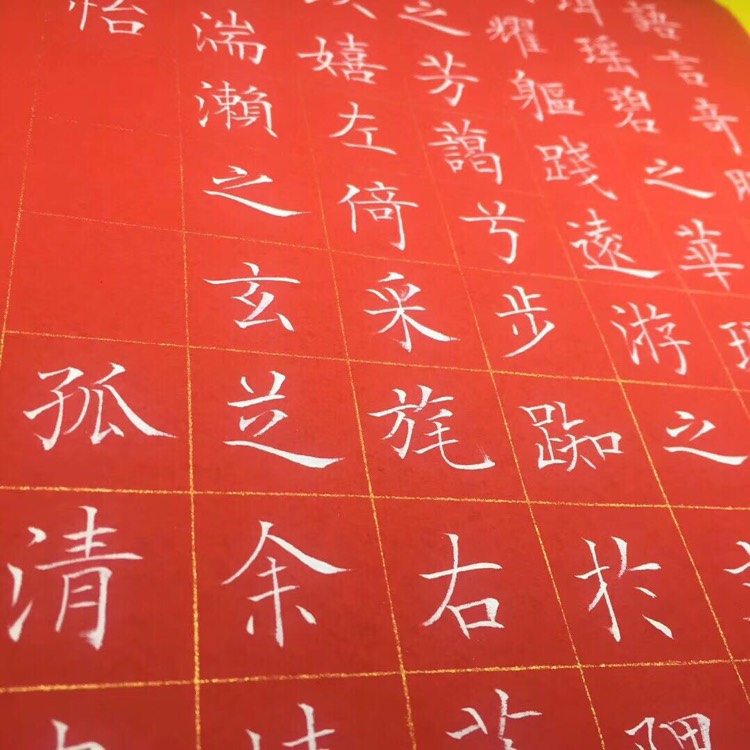 語言奇
瑤碧之華
耀軀踐遠游之
之芳藹兮步踟於
嬉左倚采旄右
湍瀨之玄芝余
怡
孤清